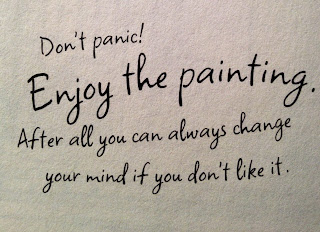 Don't panic!
Enjoy the painting.
After all you can always change
your mind if you don't like it.